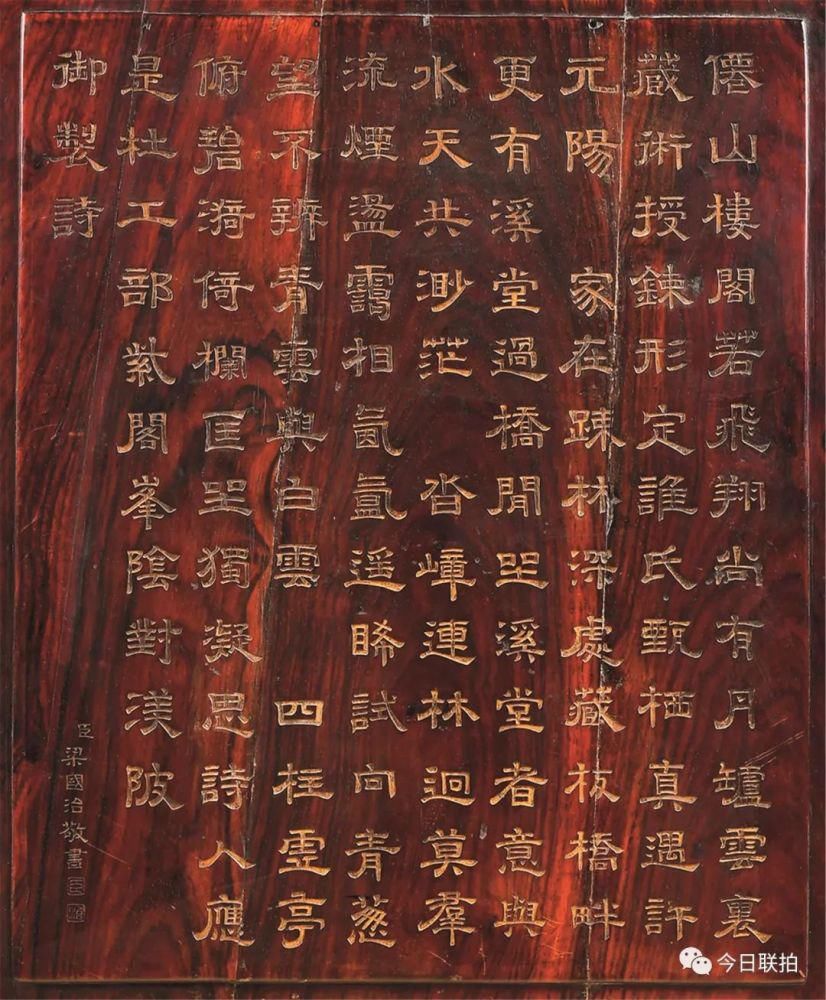 僊山樓閣若飛翔尚有丹罏雲裏
藏術授鍊形定誰氏甄栖真遇許
元陽 家在踈林深處藏板橋畔
更有溪堂過橋閒坐溪堂者意與
水天共渺茫 沓嶂連林迥莫羣
流煙盪靄相氤氳遥睎試向青蔥
望不辨青雲與白雲 四柱虛亭
俯碧漪倚欄匡坐獨凝思詩人應
是杜工部紫閣峯陰對渼陂
御製詩
臣梁國治敬書
今日联拍